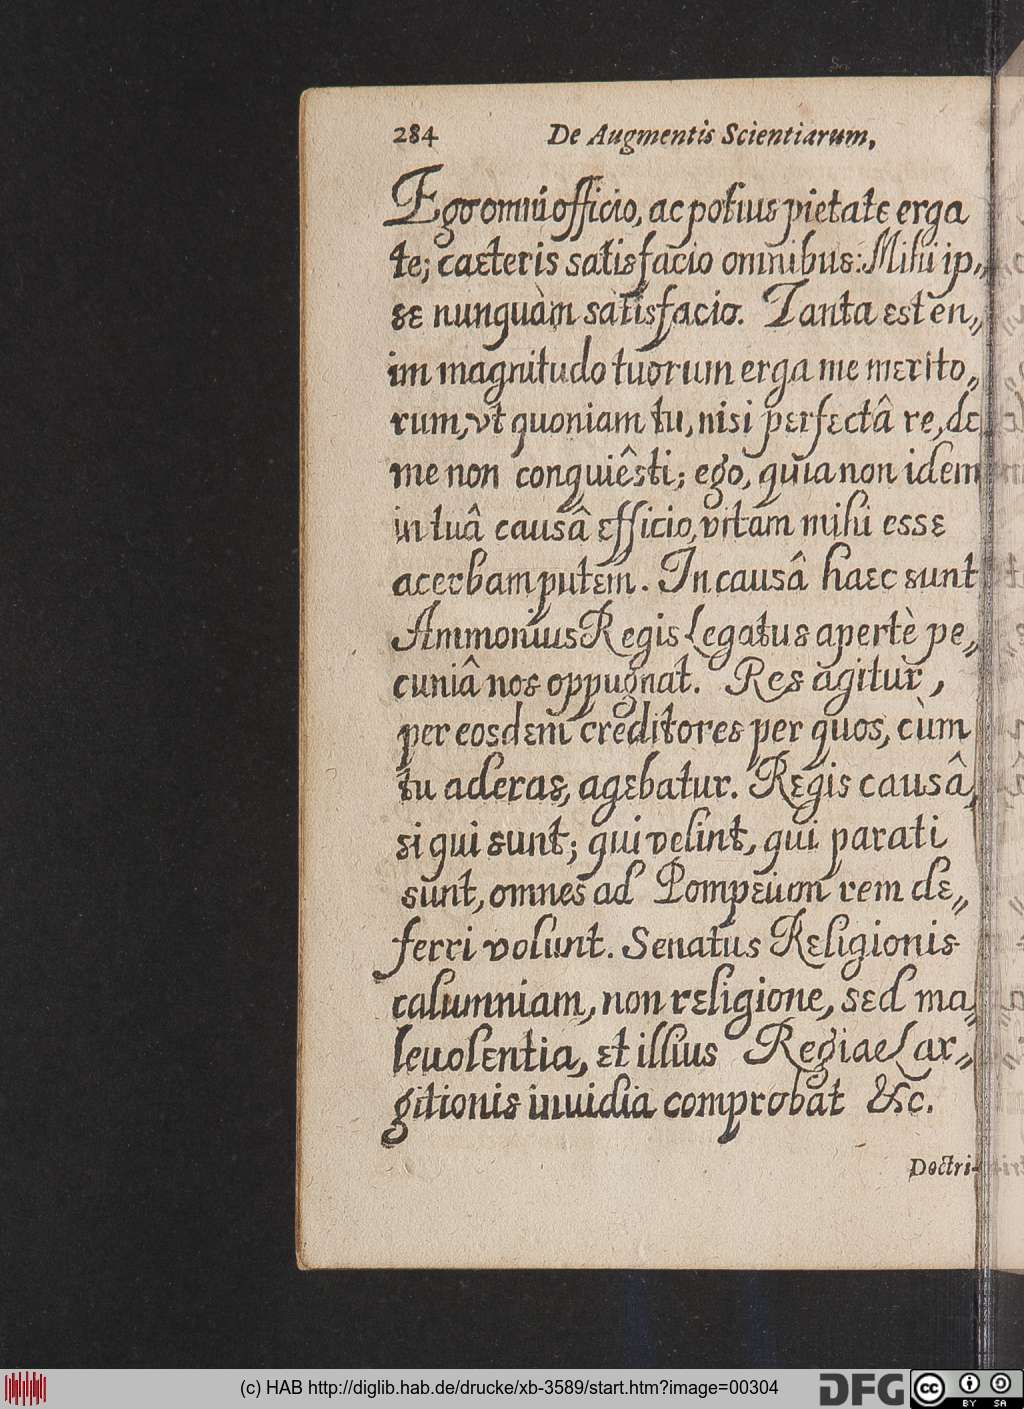 284 De Augmentis Scientiarum,
Ego omni officio, ac potius pietate erga
te; caeteris satisfacio omnibus: Mihi ip„
se nunquàm satisfacio. Tanta est en„
im magnitudo tuorum erga me merito„
rum, vt quoniam tu, nisi perfectâ re, de
me non conquiêsti; ego, quia non idem
in tuâ causâ efficio, vitam mihi esse
acerbam putem. In causâ haec sunt
Ammonius Regis Legatus apertè pe„
cuniâ nos oppugnat. Res agitur,
per eosdem creditores per quos, cùm
tu aderas, agebatur. Regis causâ,
si qui sunt; qui velint, qui parati
sunt, omnes ad Pompeium rem de„
ferri volunt. Senatus Religionis
calumniam, non religione, sed ma„
leuolentia, et illius Regiae Lar„
gitionis inuidia comprobat &c.
Doctri-
(c) HAB http://diglib.hab.de/drucke/xb-3589/start.htm?image=00304
DFG cc BY SA